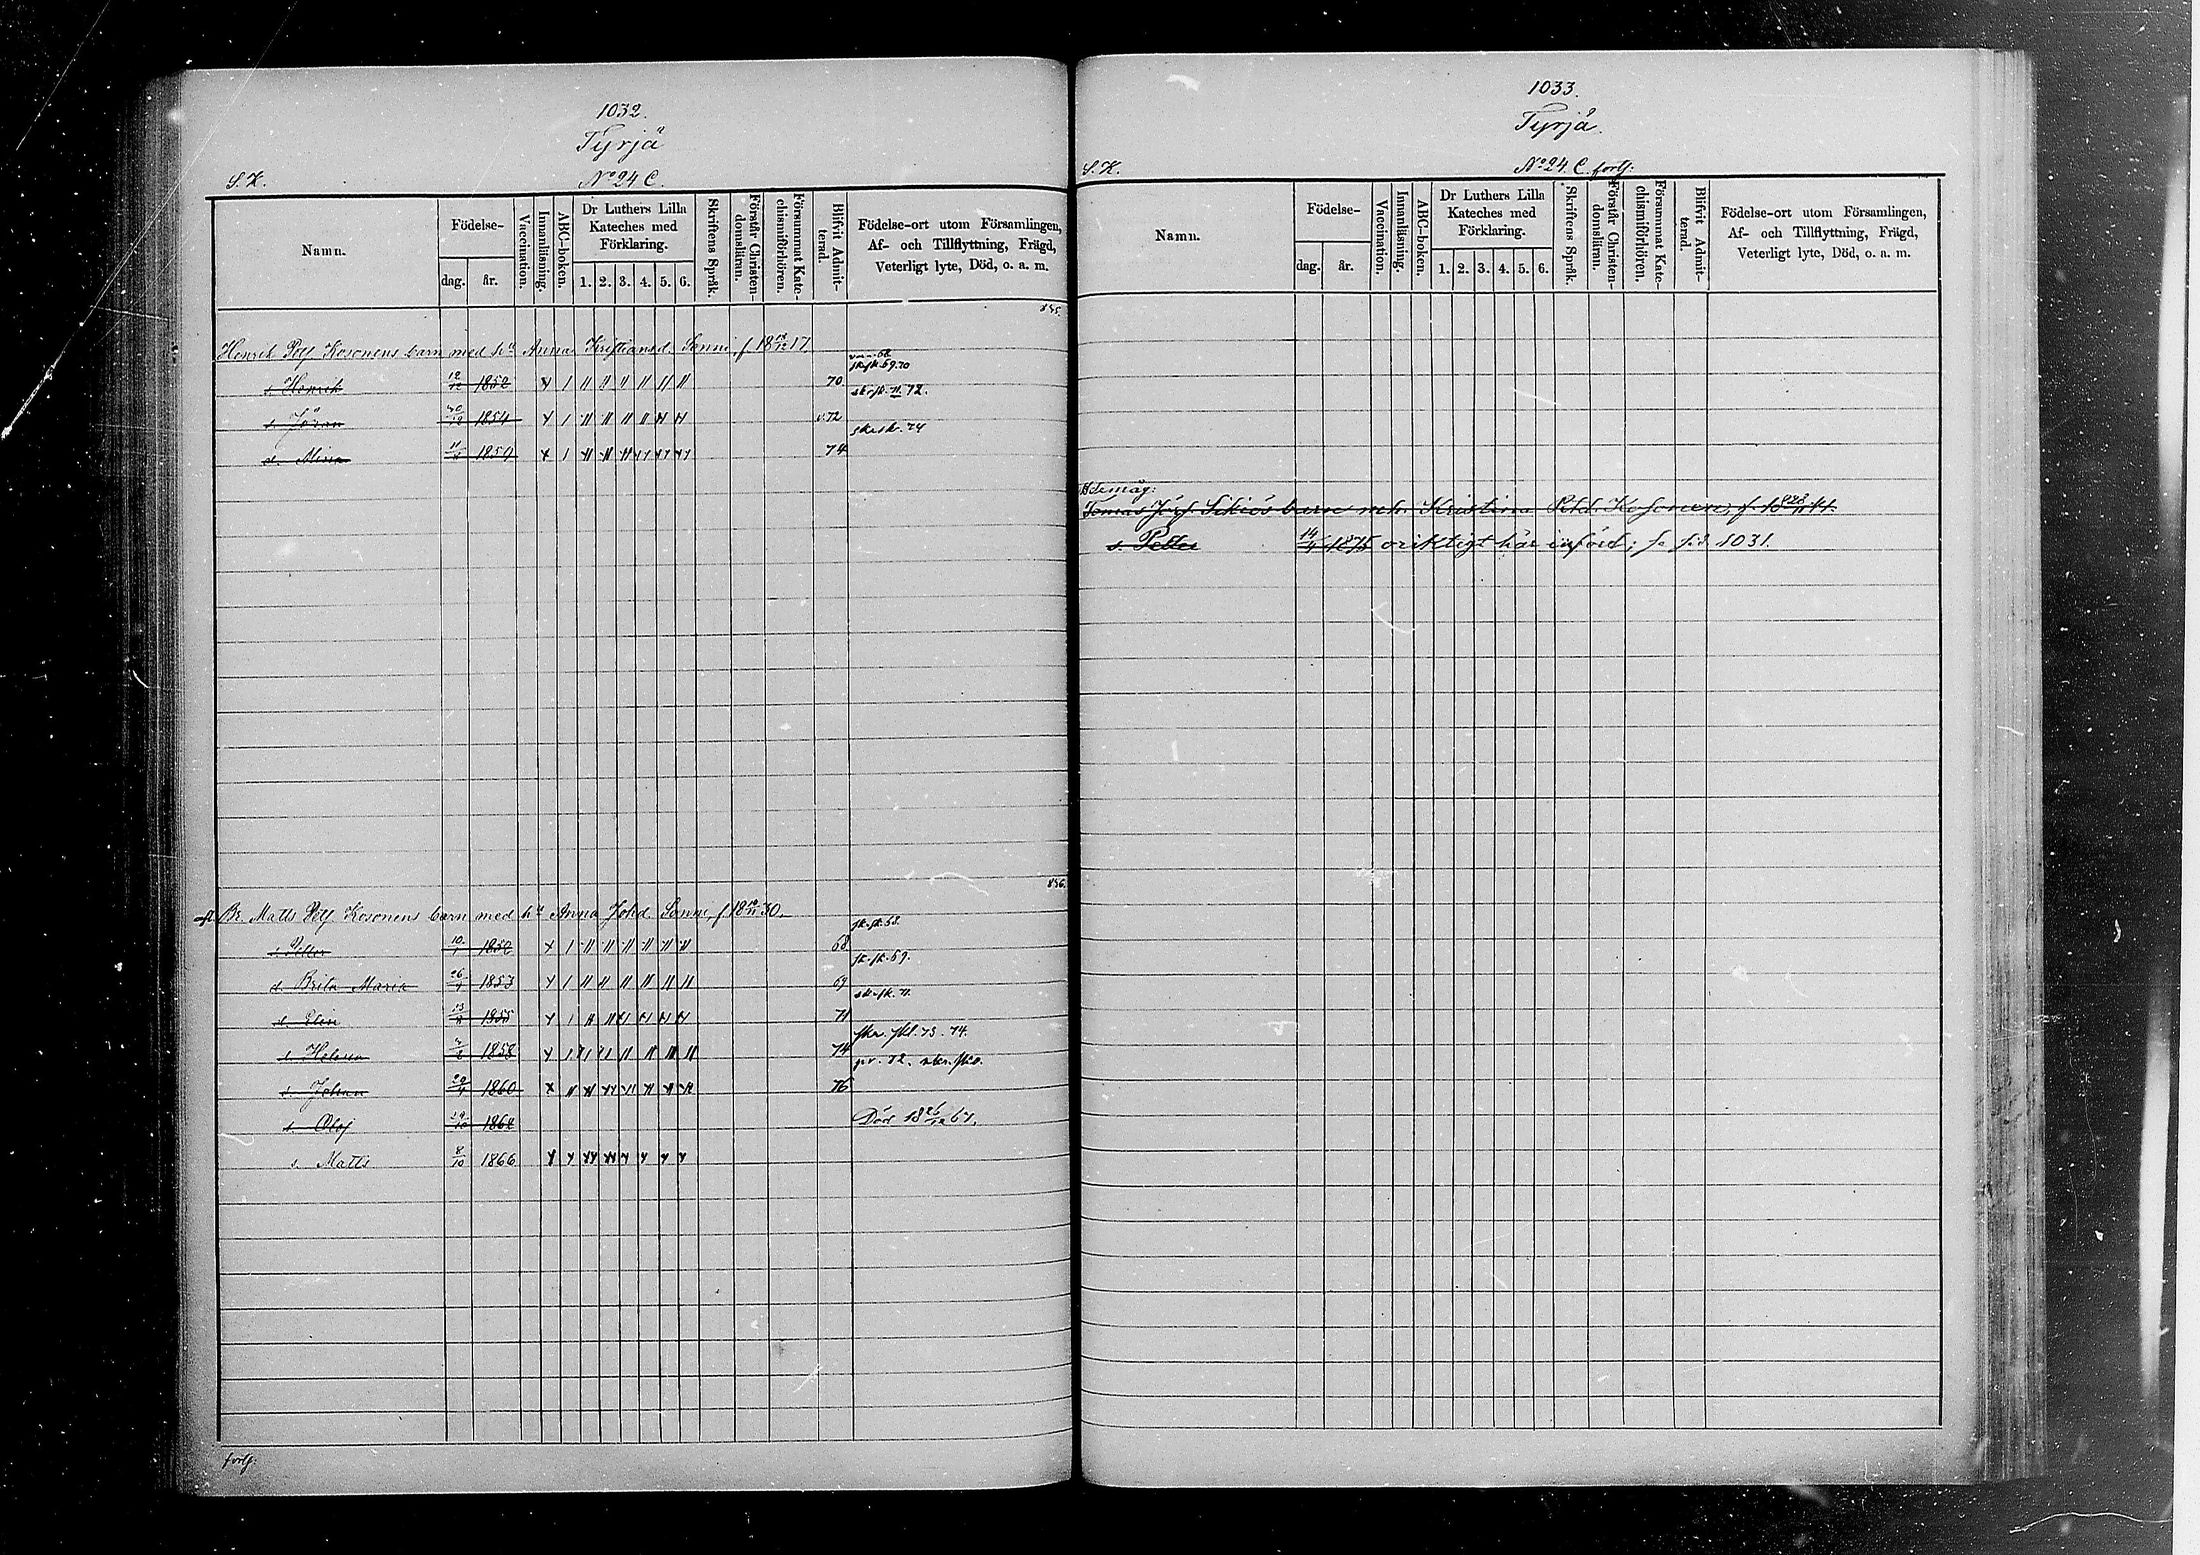 1032.
Tyrjä
S. K.
No 24 C.
Namn.
Födelse-
dag.
år.
Vaccination.
Innanläsning.
ABC-boken.
Dr Luthers Lilla
Kateches med
Förklaring.
1. 2. 3. 4. 5. 6.
Skriftens Språk.
Förstår Christen-
domsläran.
Försummat Kate-
chismiförhören.
Blifvit Admit-
terad.
Födelse-ort utom Församlingen,
Af- och Tillflyttning, Frägd,
Veterligt lyte, Död, o. a. m.
845.
Henrik Petf Kosonens barn med hu Anna Kristiansd. Sonni, f. 18 17.
s. Henrik 1852 70
s. Jöran 1854 v. 72
d. Mina 1859 74
846.
Br. Matts Petf Kosonens barn med hu Anna Johd Sonni, f. 18 30.
s. Petter 10/1 1852 68
d. Brita Maria 1853 69
d. Elin 1855 71
d. Helena 1858 74
s. Johan 1860 76
s. Olof 1862 Död 18 26/12 67.
s. Matts 8/10 1866
forts.
1033.
Tyrjä.
S. K.
No 24. C. forts:
Namn.
Födelse-
dag.
år.
Vaccination.
Innanläsning.
ABC-boken.
Dr Luthers Lilla
Kateches med
Förklaring.
1. 2. 3. 4. 5. 6.
Skriftens Språk.
Förstår Christen-
domsläran.
Försummat Kate-
chismiförhören.
Blifvit Admit-
terad.
Födelse-ort utom Församlingen,
Af- och Tillflyttning, Frägd,
Veterligt lyte, Död, o. a. m.
Hemmåg:
Tomas Jösf. barn m. h. Kristina Ptd. Kosonen, f. 18 41.
s. Petter 14/4 1875 oriktigt här införd; se sid 1031.